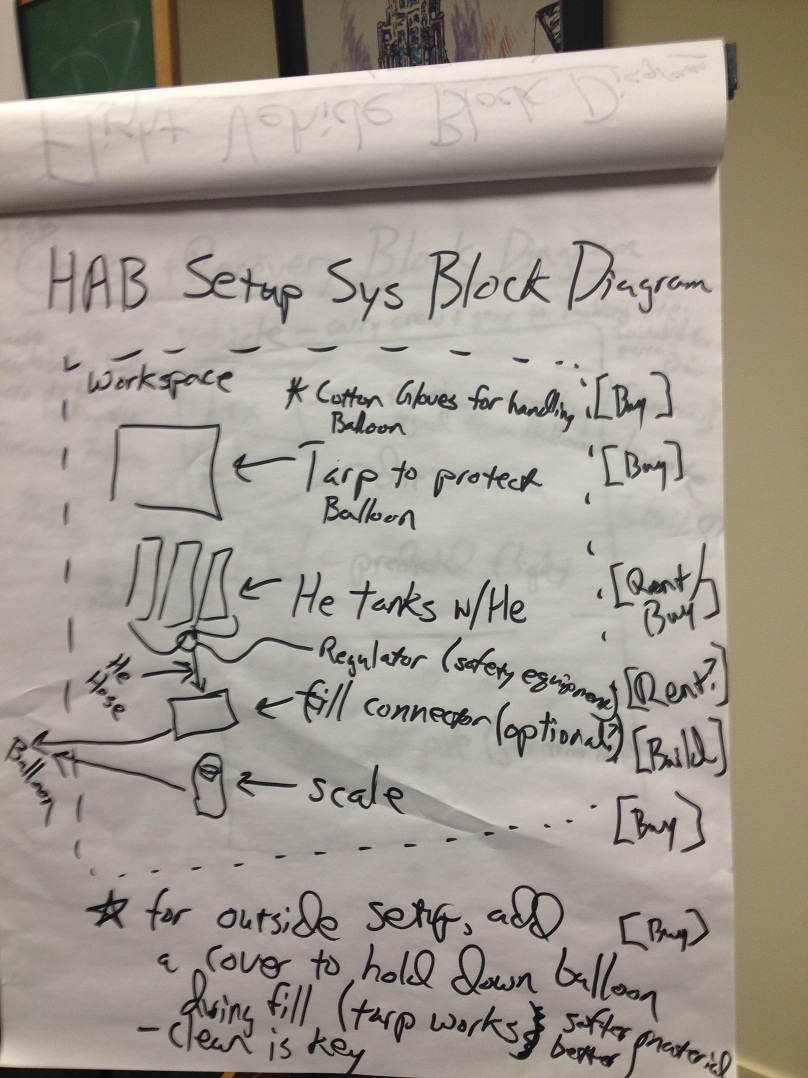 Flight Vehicle Block Diagram
HAB Setup Sys Block Diagram
Workspace
* Cotton Gloves for handling [Buy]
Balloon
Tarp to protect [Buy]
Balloon
He tanks w/He [Rent/
Buy]
Regulator (safety equipment) [Rent?]
He
Hose
fill connector (optional?) [Build]
Balloon
scale [Buy]
☆ for outside setup, add [Buy]
a cover to hold down balloon
during fill (tarp works } softer material
better
- clean is key